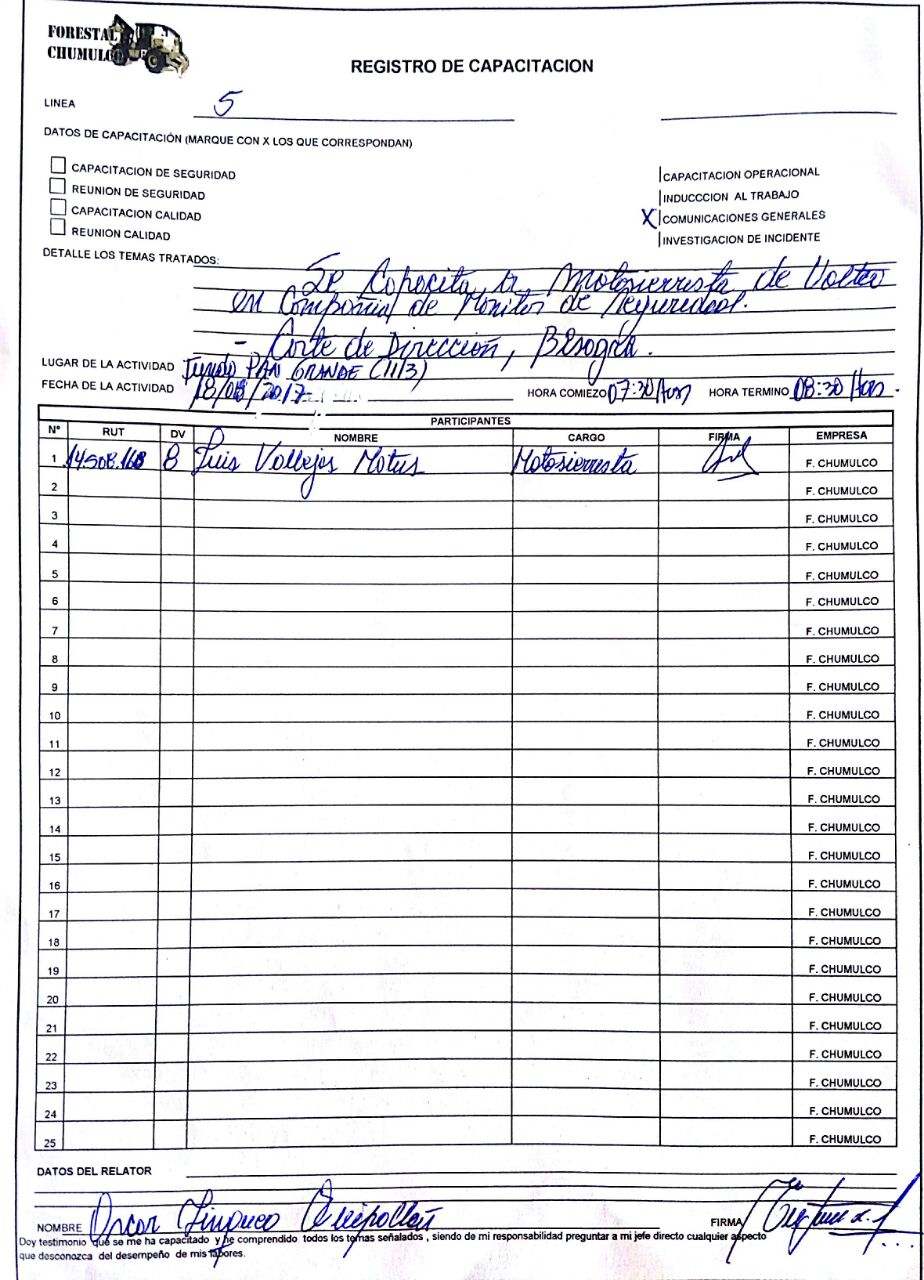 FORESTAL
CHUMULCO
REGISTRO DE CAPACITACION
LINEA 5
DATOS DE CAPACITACIÓN (MARQUE CON X LOS QUE CORRESPONDAN)
CAPACITACION DE SEGURIDAD
REUNION DE SEGURIDAD
CAPACITACION CALIDAD
REUNION CALIDAD
CAPACITACION OPERACIONAL
INDUCCCION AL TRABAJO
X COMUNICACIONES GENERALES
INVESTIGACION DE INCIDENTE
DETALLE LOS TEMAS TRATADOS:
Se Capacita, a Motosierrista de Volteo
en Compañia de Monitor de Seguridad.
- Corte de Dirección, Bisagra.
LUGAR DE LA ACTIVIDAD Fundo PAN GRANDE (1113)
FECHA DE LA ACTIVIDAD 18/08/2017 HORA COMIEZO 07:30 Hrs HORA TERMINO 08:30 Hrs.
PARTICIPANTES
N° RUT DV NOMBRE CARGO FIRMA EMPRESA
1 14.508.168 8 Luis Vallejos Matus Motosierrista F. CHUMULCO
2 F. CHUMULCO
3 F. CHUMULCO
4 F. CHUMULCO
5 F. CHUMULCO
6 F. CHUMULCO
7 F. CHUMULCO
8 F. CHUMULCO
9 F. CHUMULCO
10 F. CHUMULCO
11 F. CHUMULCO
12 F. CHUMULCO
13 F. CHUMULCO
14 F. CHUMULCO
15 F. CHUMULCO
16 F. CHUMULCO
17 F. CHUMULCO
18 F. CHUMULCO
19 F. CHUMULCO
20 F. CHUMULCO
21 F. CHUMULCO
22 F. CHUMULCO
23 F. CHUMULCO
24 F. CHUMULCO
25 F. CHUMULCO
DATOS DEL RELATOR
NOMBRE Oscar FIRMA
Doy testimonio que se me ha capacitado y he comprendido todos los temas señalados , siendo de mi responsabilidad preguntar a mi jefe directo cualquier aspecto
que desconozca del desempeño de mis labores.